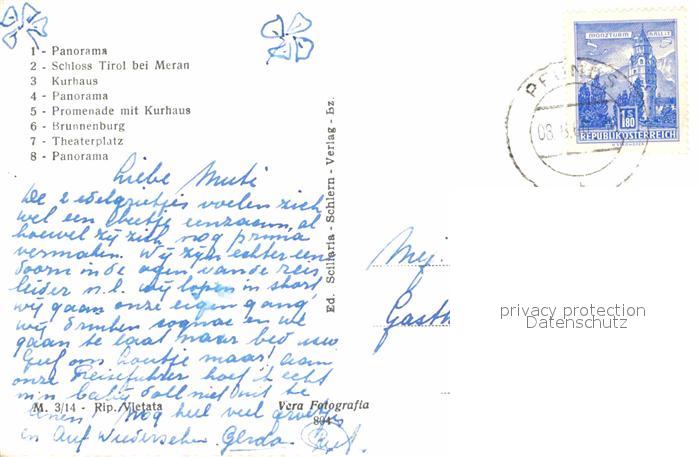 1 - Panorama
2 - Schloss Tirol bei Meran
3 Kurhaus
4 - Panorama
5 - Promenade mit Kurhaus
6 - Brunnenburg
7 - Theaterplatz
8 - Panorama
Liebe Muti
De 2 edelgrietjes voelen zich
wel een beetje eenzaam, al
hoewel zij zich nog prima
vermaken. Wij zijn echter een
doorn in de ogen van de reis
leider n.l. wij lopen in short,
wij gaan onze eigen gang,
wij drinken cognac en we
gaan te laat naar bed
Geef ons houtje maar! aan
onze Reiseführer hoef je echt
nog heel veel
en Auf Wiedersehen. Gerda.
M. 3/14 - Rip. Vietata
Vera Fotografia
894
Ed. Sciliaria - Schlern - Verlag - Bz.
MÜNZTURM HALL I.T.
S 1.80
REPUBLIK ÖSTERREICH
PFUNDS
08.
Mej.
Gasth
privacy protection
Datenschutz